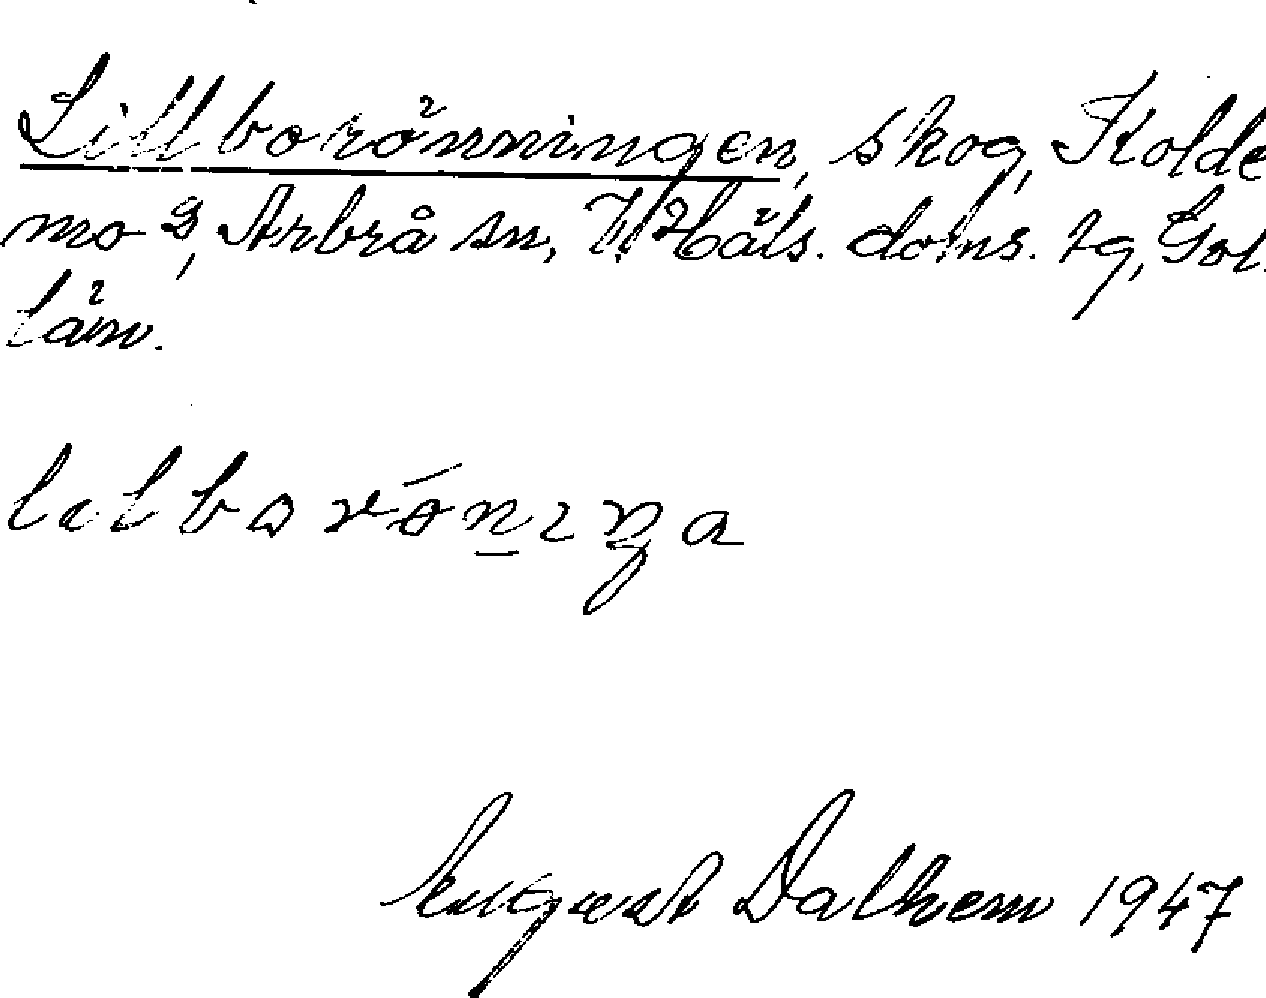 Lillborönningen, skog, Kolde
mo 2, Arbrå sn, V Häls. doms. tg, Gol.
län.
lɩlborönɩŋa
August Dalhem 1947